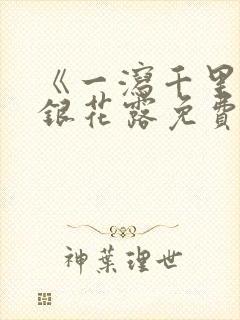 《一瀉千里
銀花露免費
神葉理世